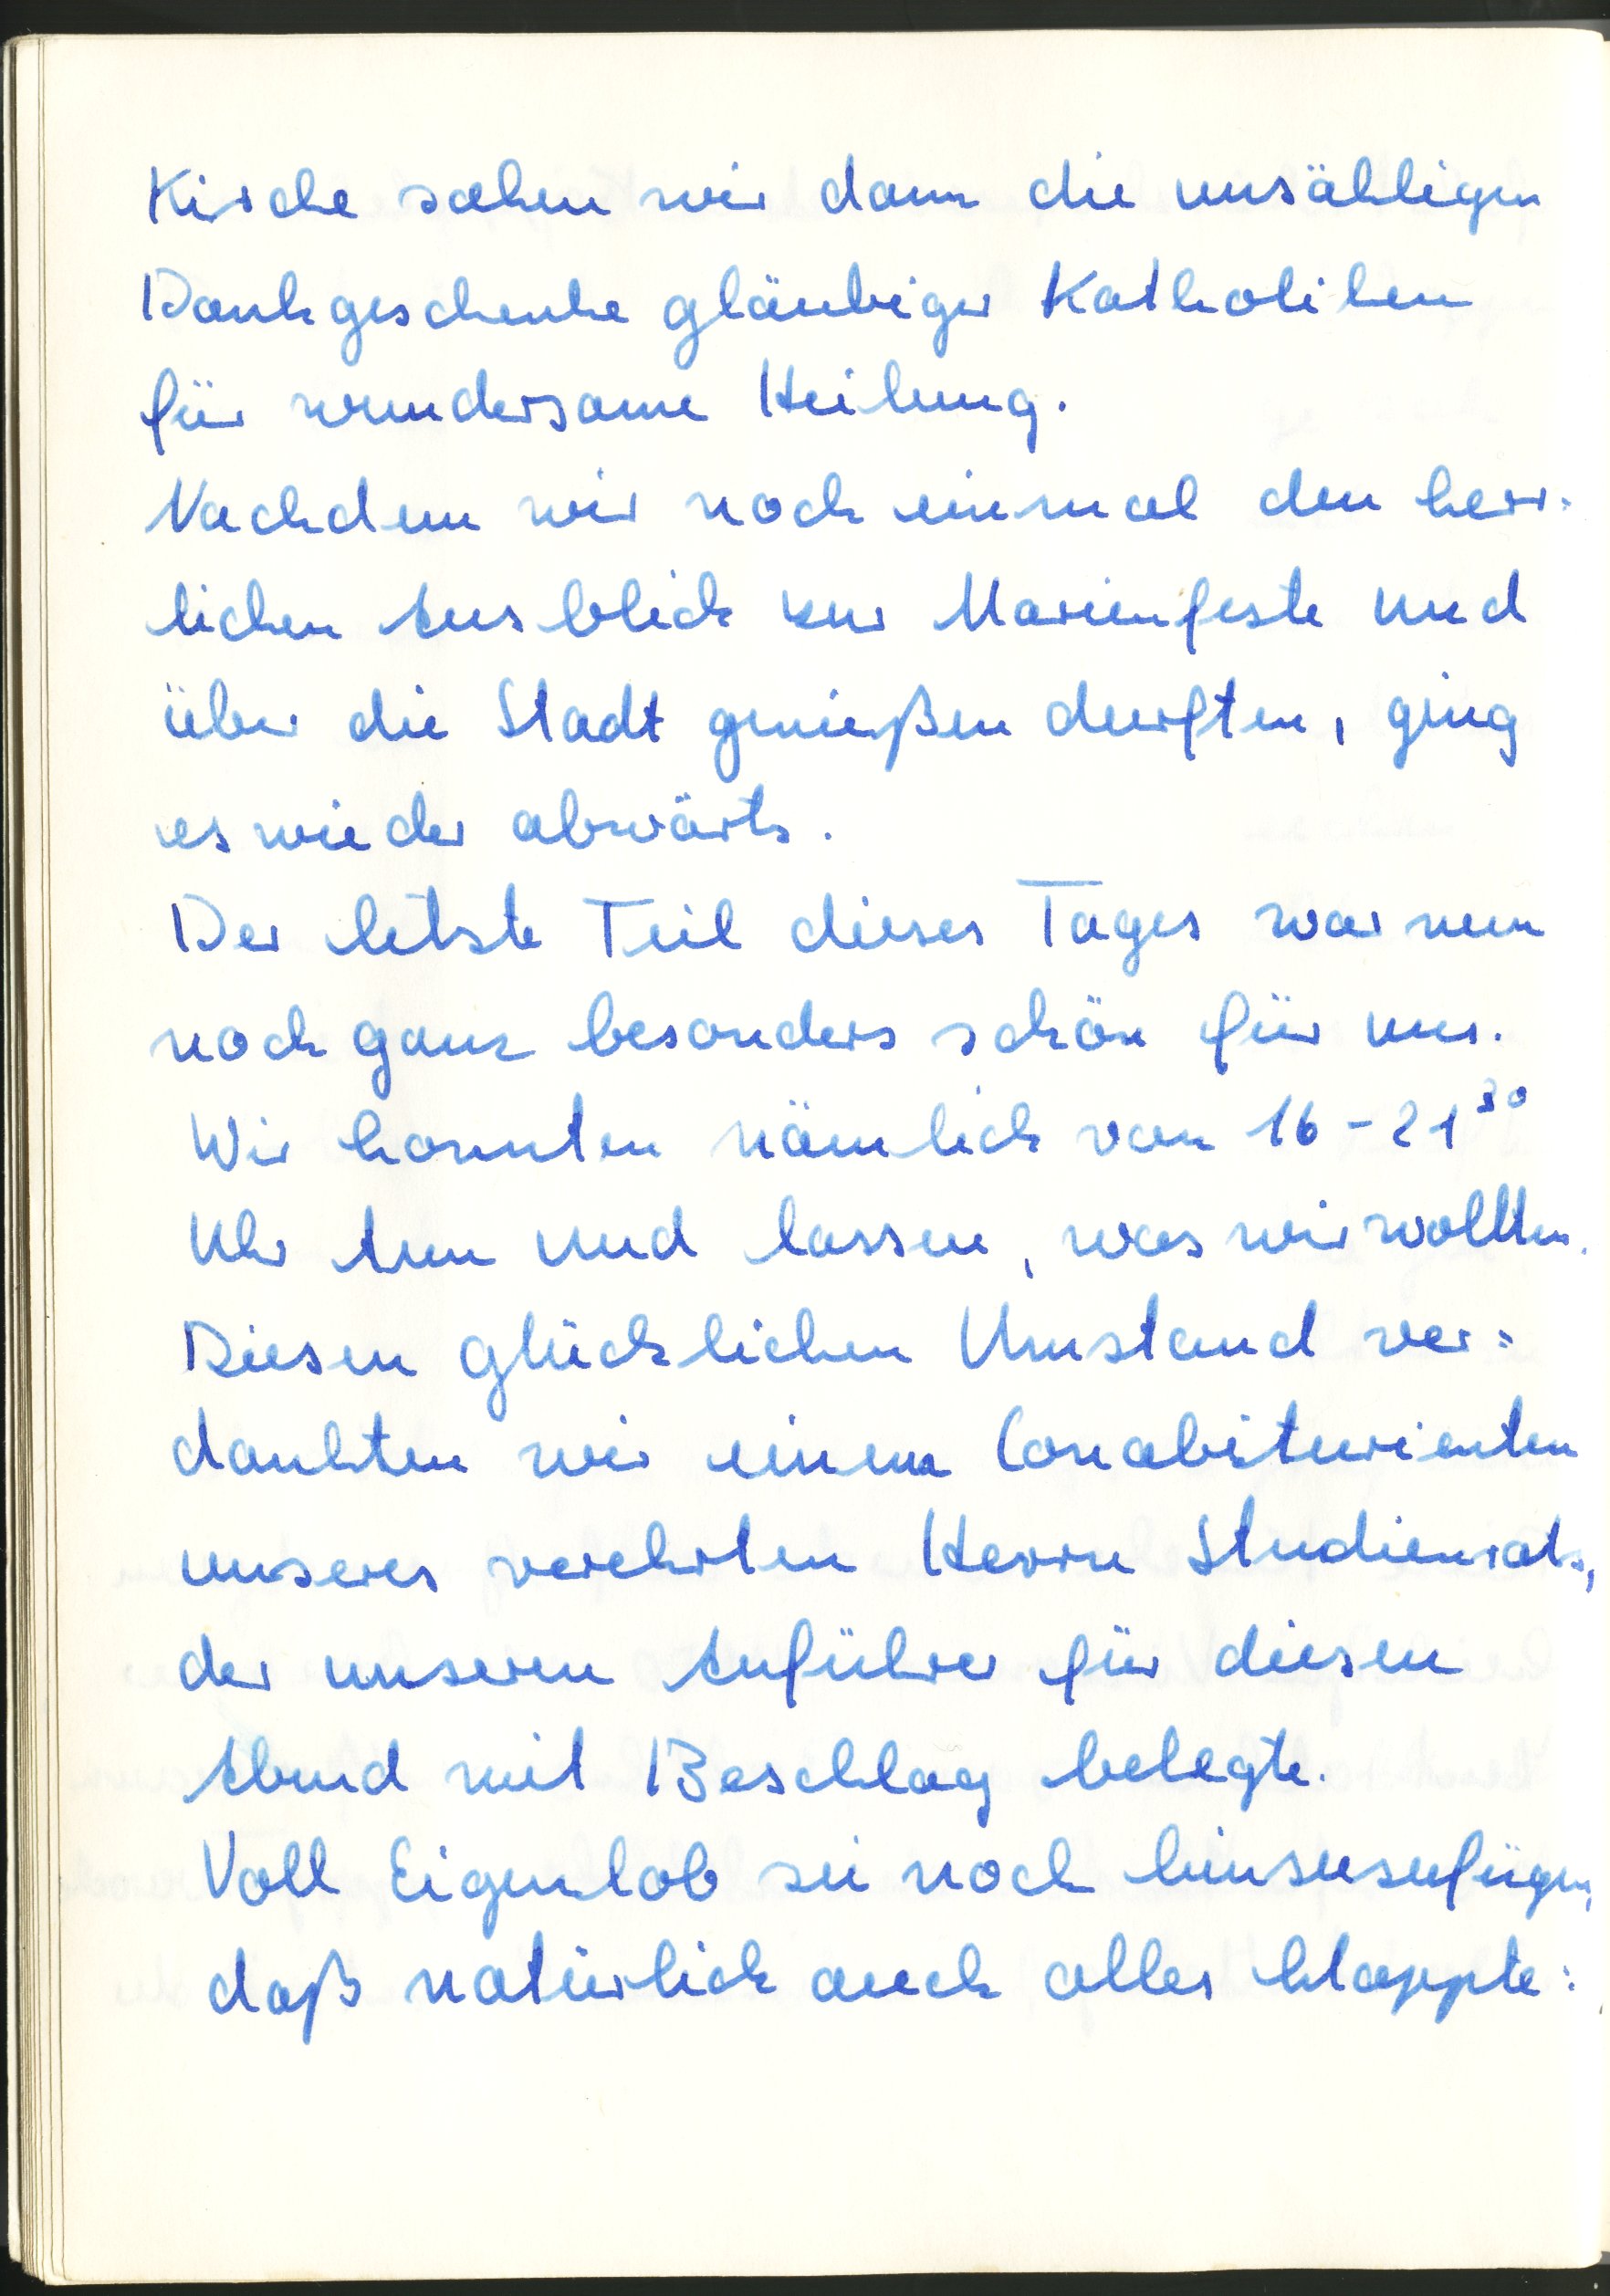 Kirche sahen wir dann die unzähligen
Dankgeschenke gläubiger Katholiken
für wundersame Heilung.
Nachdem wir noch einmal den herr-
lichen Ausblick zur Marienfeste und
über die Stadt genießen durften, ging
es wieder abwärts.
Der letzte Teil dieses Tages war nun
noch ganz besonders schön für uns.
Wir konnten nämlich von 16-21³⁰
Uhr tun und lassen, was wir wollten.
Diesen glücklichen Umstand ver-
dankten wir einem Conabiturienten
unseres verehrten Herrn Studienrats,
der unseren Anführer für diesen
Abend mit Beschlag belegte.
Voll Eigenlob sei noch hinzuzufügen,
daß natürlich auch alles klappte: